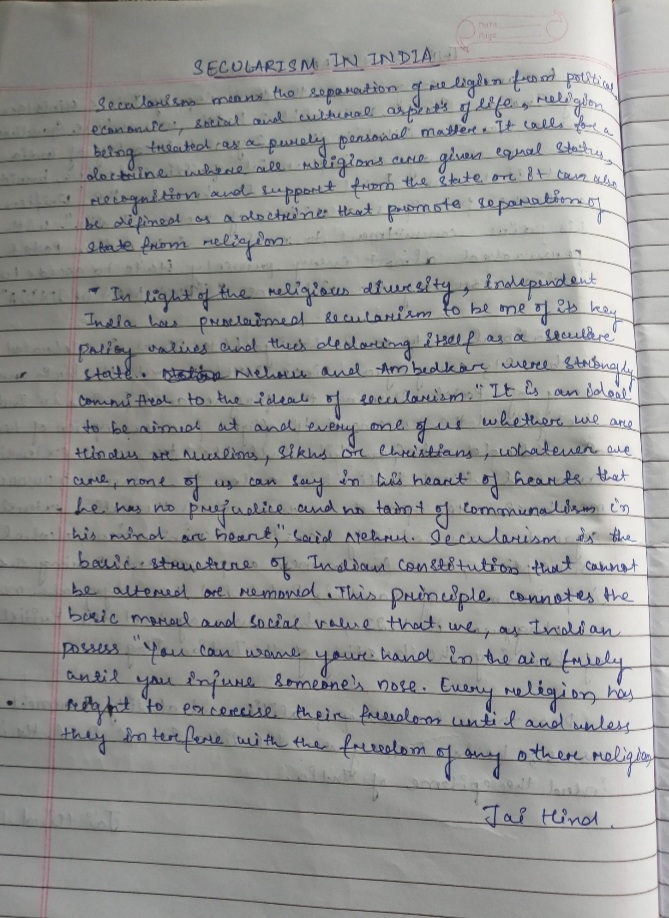 SECULARISM IN INDIA
Secularism means the separation of religion from political
economic, social and cultural aspects of life, religion
being treated as a purely personal matter. It calls for a
doctrine where all religions are given equal status,
recognition and support from the state or it can also
be defined as a doctrine that promote separation of
state from religion.
In light of the religious diversity, independent
India has proclaimed secularism to be one of its key
policy values and thus declaring itself as a seculare
state. Nehru and Ambedkar were strongly
committed to the ideal of secularism. "It is an ideal
to be aimed at and every one of us whether we are
Hindus or Muslims, Sikhs or Christians, whatever we
are, none of us can say in his heart of hearts that
he has no prejudice and no taint of communalism in
his mind or heart," said Nehru. Secularism is the
basic structure of Indian constitution that cannot
be altered or removed. This principle connotes the
basic moral and social value that we, as Indian
possess "You can wave your hand in the air freely
until you injure someone's nose. Every religion has
right to excercise their freedom until and unless
they interfere with the freedom of any other religion
Jai Hind.